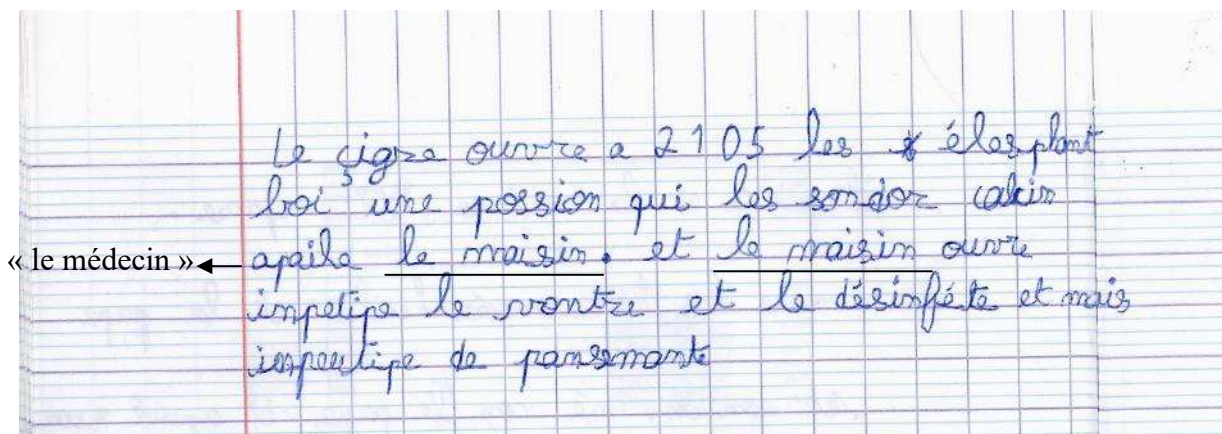 Le çigre ouvre a 2105 les éles plant
boi une possion qui les sondor calcin
« le médecin » apaila le maisin. et le maisin ouvre
impetipe le vontre et le désinféte et mais
impeutipe de pansemante